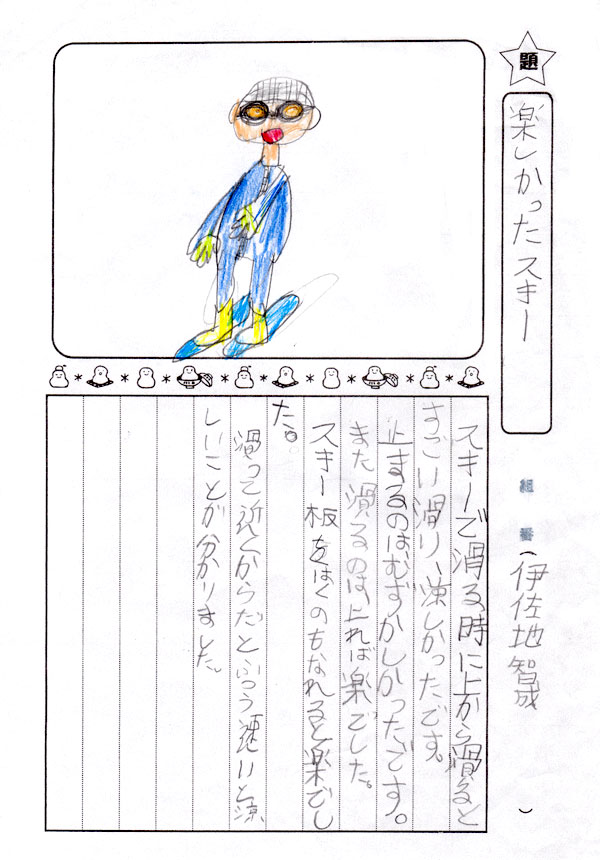 題
楽しかったスキー
組 番(伊佐地智成)
スキーで滑る時に上から滑ると
すごい滑り、涼しかったです。
止まるのは、むずかしかったです。
また滑るのは、上れば楽でした。
スキー板をはくのもなれると楽でし
た。
滑って近くからだとふつう速いと涼
しいことが分かりました。